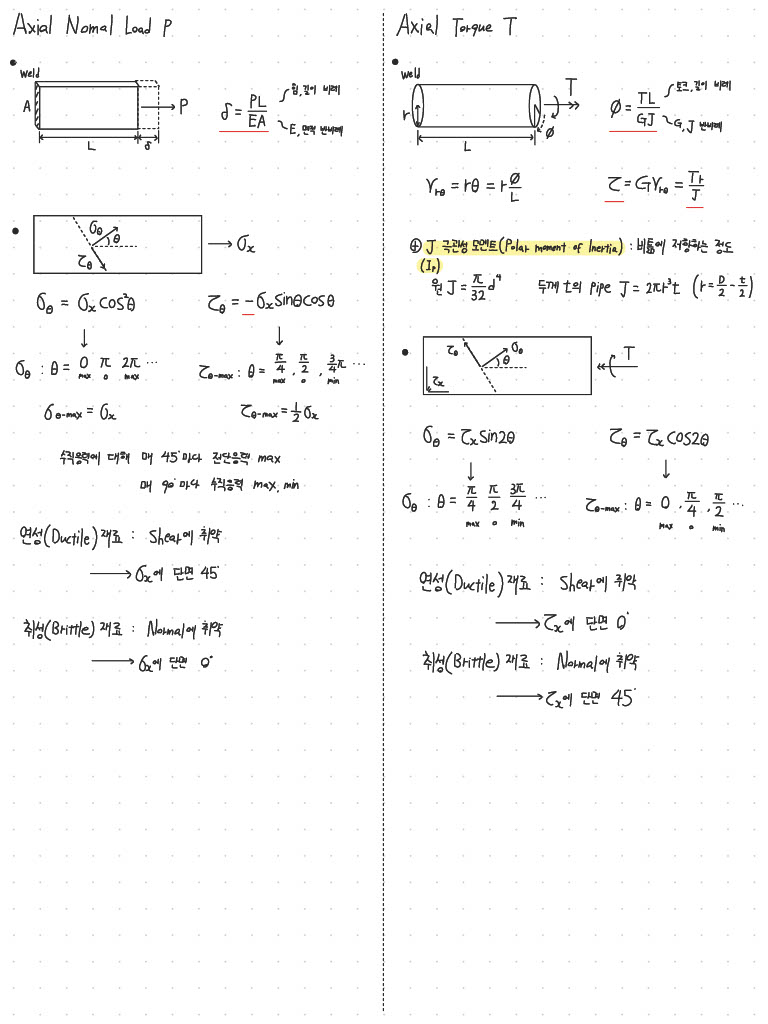 Axial Nomal Load P
Weld
A
P
L
δ
δ = PL/EA
힘, 길이 비례
E, 면적 반비례
σθ
θ
τθ
σx
σθ = σx cos²θ
τθ = -σx sinθcosθ
σθ : θ = 0 π 2π ...
max 0 max
τθ-max : θ = π/4, π/2, 3/4π ...
max 0 min
σθ-max = σx
τθ-max = 1/2 σx
수직응력에 대해 매 45°마다 전단응력 max
매 90°마다 수직응력 max, min
연성(Ductile) 재료 : Shear에 취약
→ σx에 단면 45°
취성(Brittle) 재료 : Normal에 취약
→ σx에 단면 0°
Axial Torque T
Weld
r
T
L
ø
ø = TL/GJ
토크, 길이 비례
G, J 반비례
γrθ = rθ = r ø/L
τ = Gγrθ = Tr/J
⊕ J 극관성 모멘트(Polar moment of Inertia) : 비틂에 저항하는 정도
(Ip)
원 J = π/32 d⁴
두께 t의 pipe J = 2πr³t (r = D/2 - t/2)
τθ
σθ
θ
τx
T
σθ = τx sin2θ
τθ = τx cos2θ
σθ : θ = π/4 π/2 3π/4 ...
max 0 min
τθ-max : θ = 0, π/4, π/2 ...
max 0 min
연성(Ductile) 재료 : Shear에 취약
→ τx에 단면 0°
취성(Brittle) 재료 : Normal에 취약
→ τx에 단면 45°